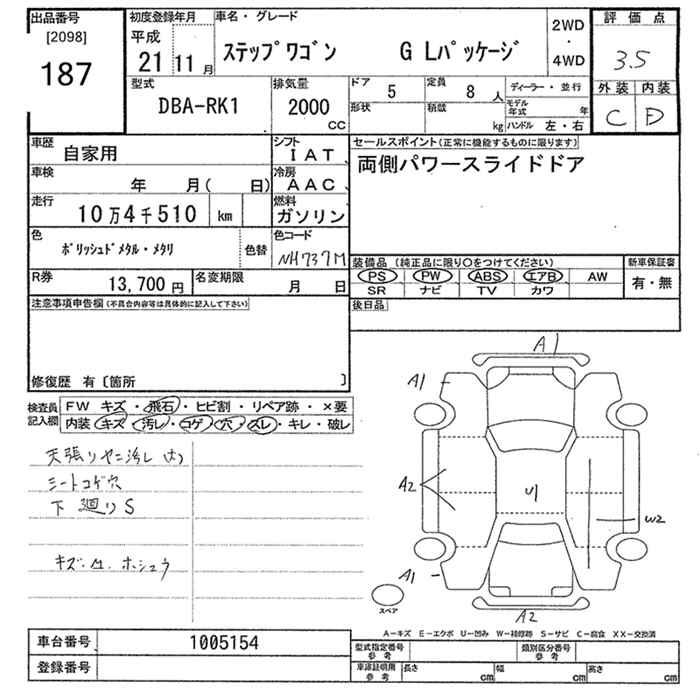 出品番号 [2098] 187
初度登録年月 平成 21 11 月
車名・グレード ステップワゴン G Lパッケージ
2WD ・ 4WD
評価点 3.5
外装 内装
C D
型式 DBA-RK1
排気量 2000 CC
ドア 5
定員 8 人
ディーラー・並行
形状
積載 kg
モデル年式 年
ハンドル 左・右
車歴 自家用
シフト IAT
セールスポイント(正常に機能するものに限ります)
両側パワースライドドア
車検 年 月( 日)
冷房 AAC
走行 10万4千510 km
燃料 ガソリン
色 ポリッシュドメタル・メタリ
色替
色コード NH737M
装備品(純正品に限り○をつけてください)
新車保証書
PS PW ABS エアB AW
SR ナビ TV カワ
有・無
R券 13,700 円
名変期限 月 日
後日品
注意事項申告欄(不具合内容等は具体的に記入して下さい)
修復歴 有〔箇所 〕
検査員記入欄
FW キズ・飛石・ヒビ割・リペア跡・×要
内装 キズ・汚レ・コゲ・穴・ズレ・キレ・破レ
天張リヤニ汚レ(大)
シートコゲ穴
下廻りS
キズ・凹・ホシュウ
A1
A1
A2
U1
W2
A1
A2
スペア
A−キズ E−エクボ U−凹み W−補修跡 S−サビ C−腐食 XX−交換済
車台番号 1005154
登録番号
型式指定番号 参考
類別区分番号 参考
車庫証明用 参考
長さ cm
幅 cm
高さ cm